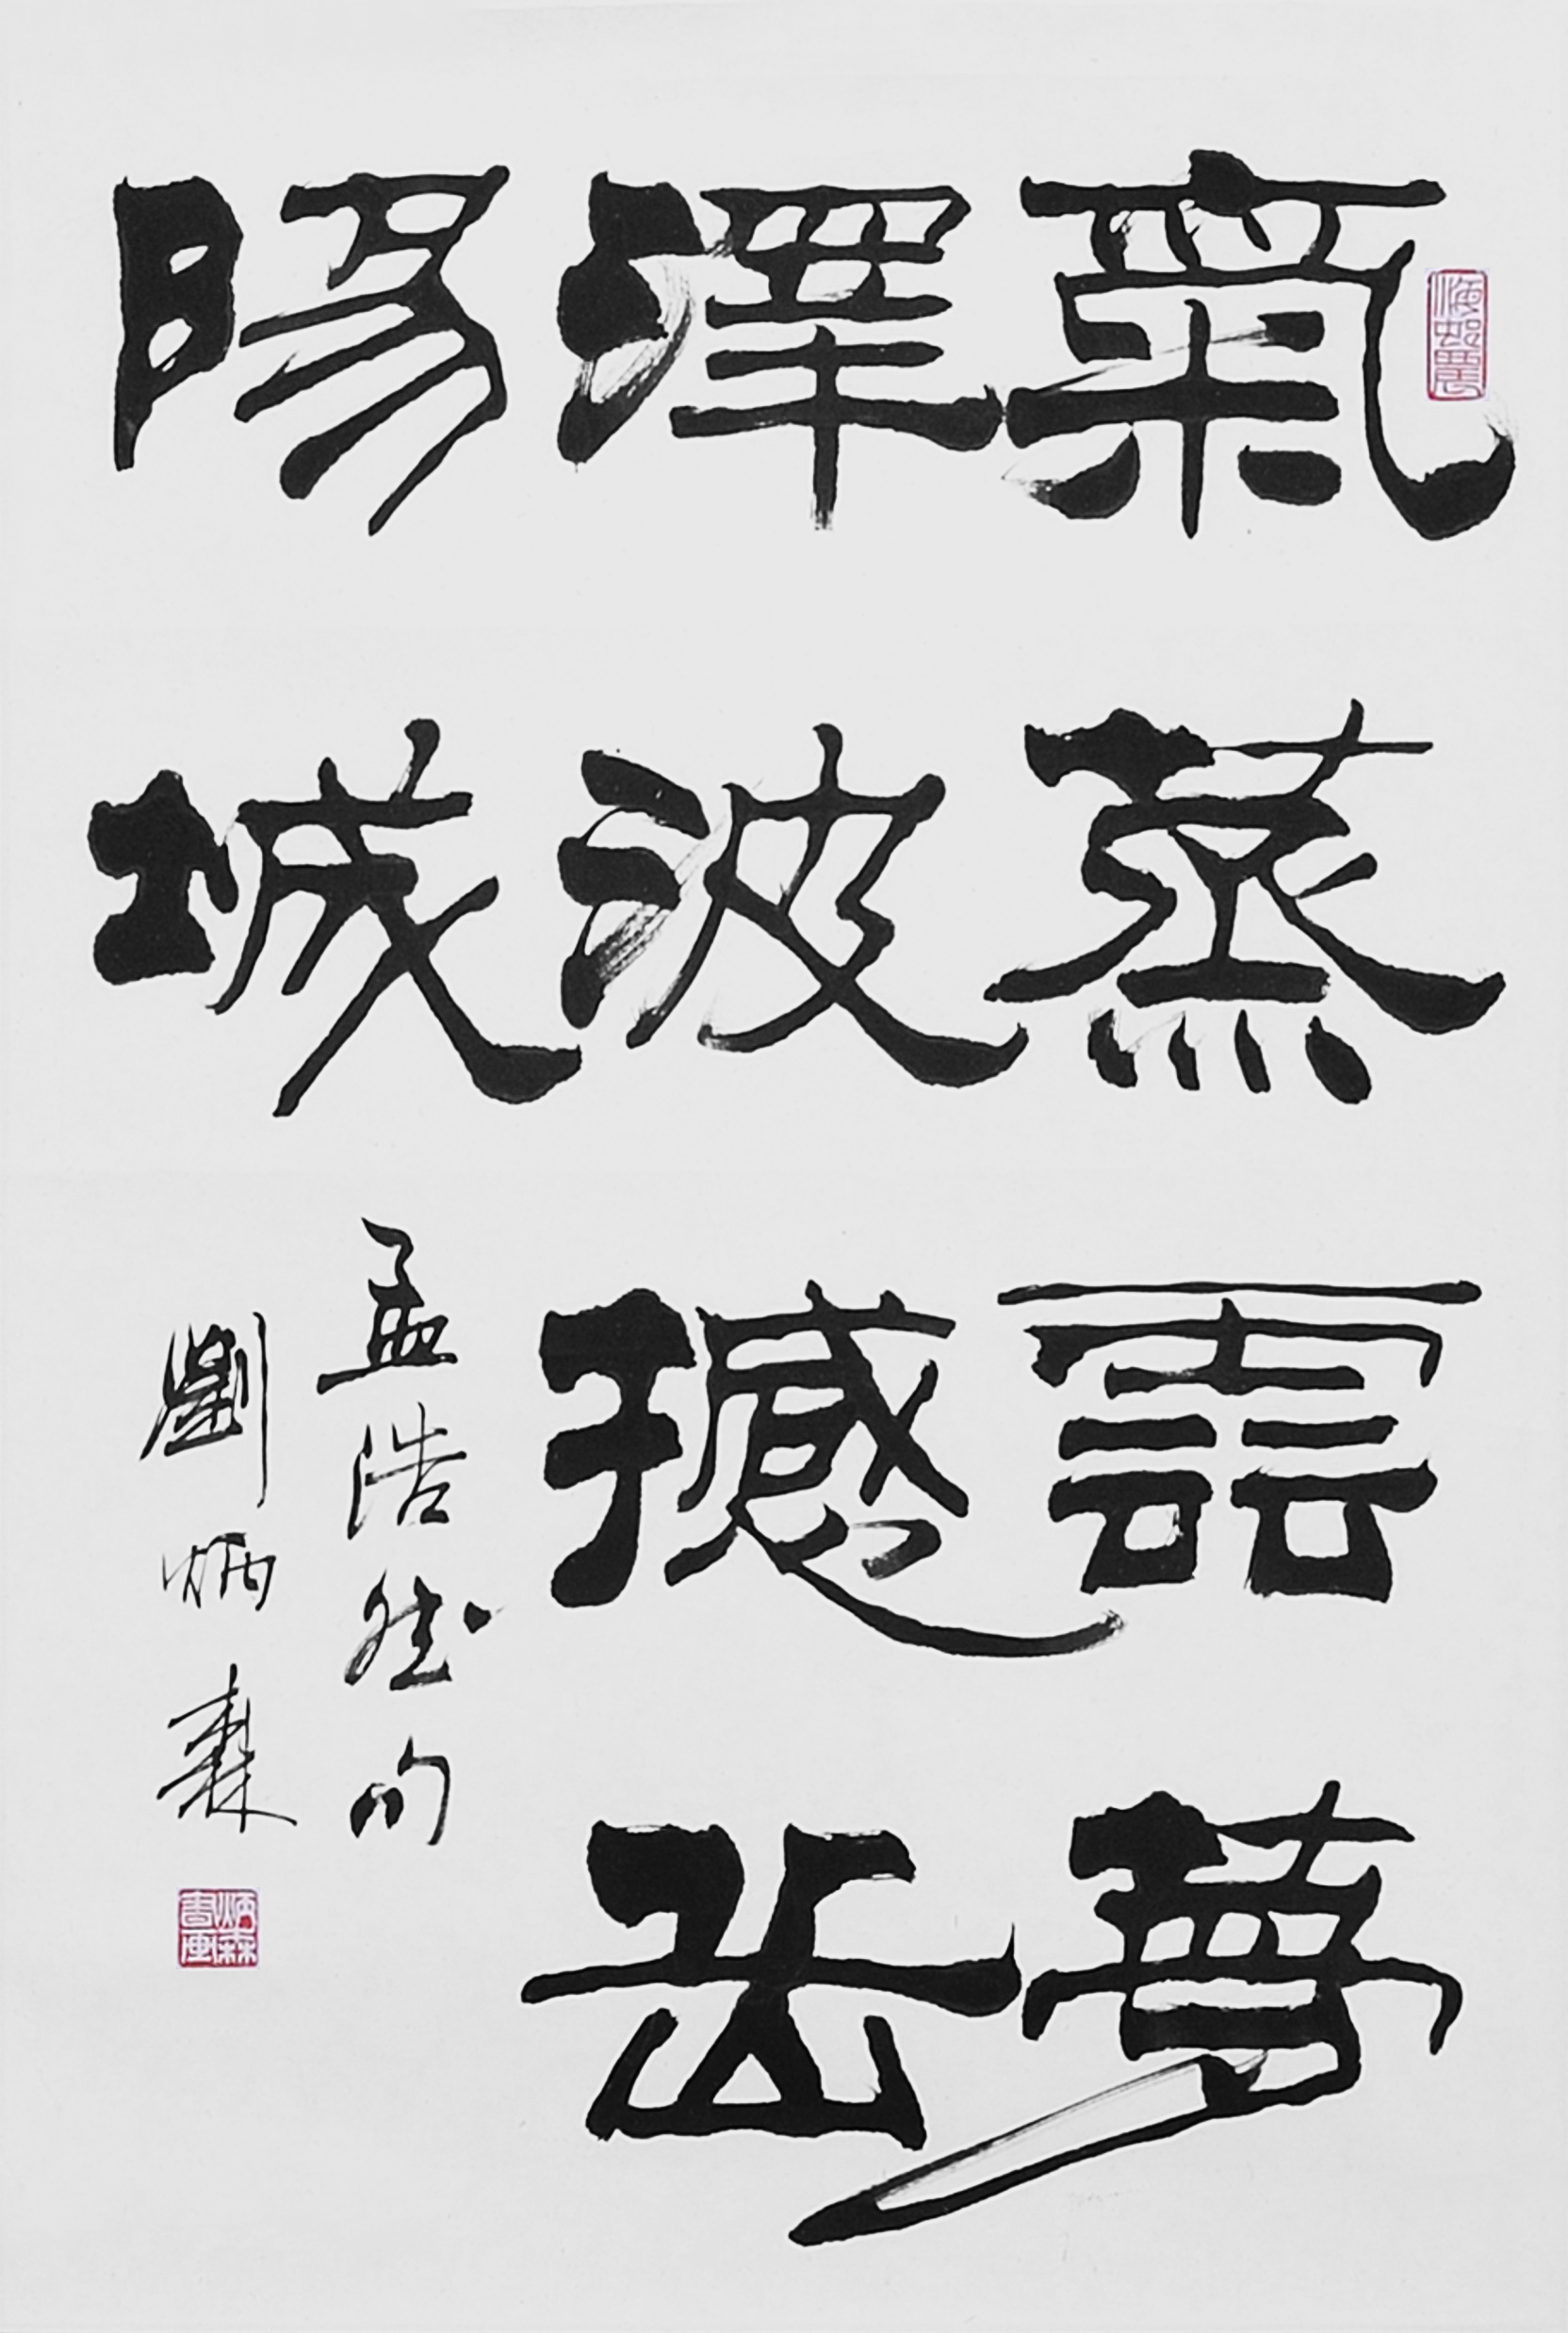 氣蒸雲夢
澤波撼岳
陽城
孟浩然句
劉炳森
炳森書画